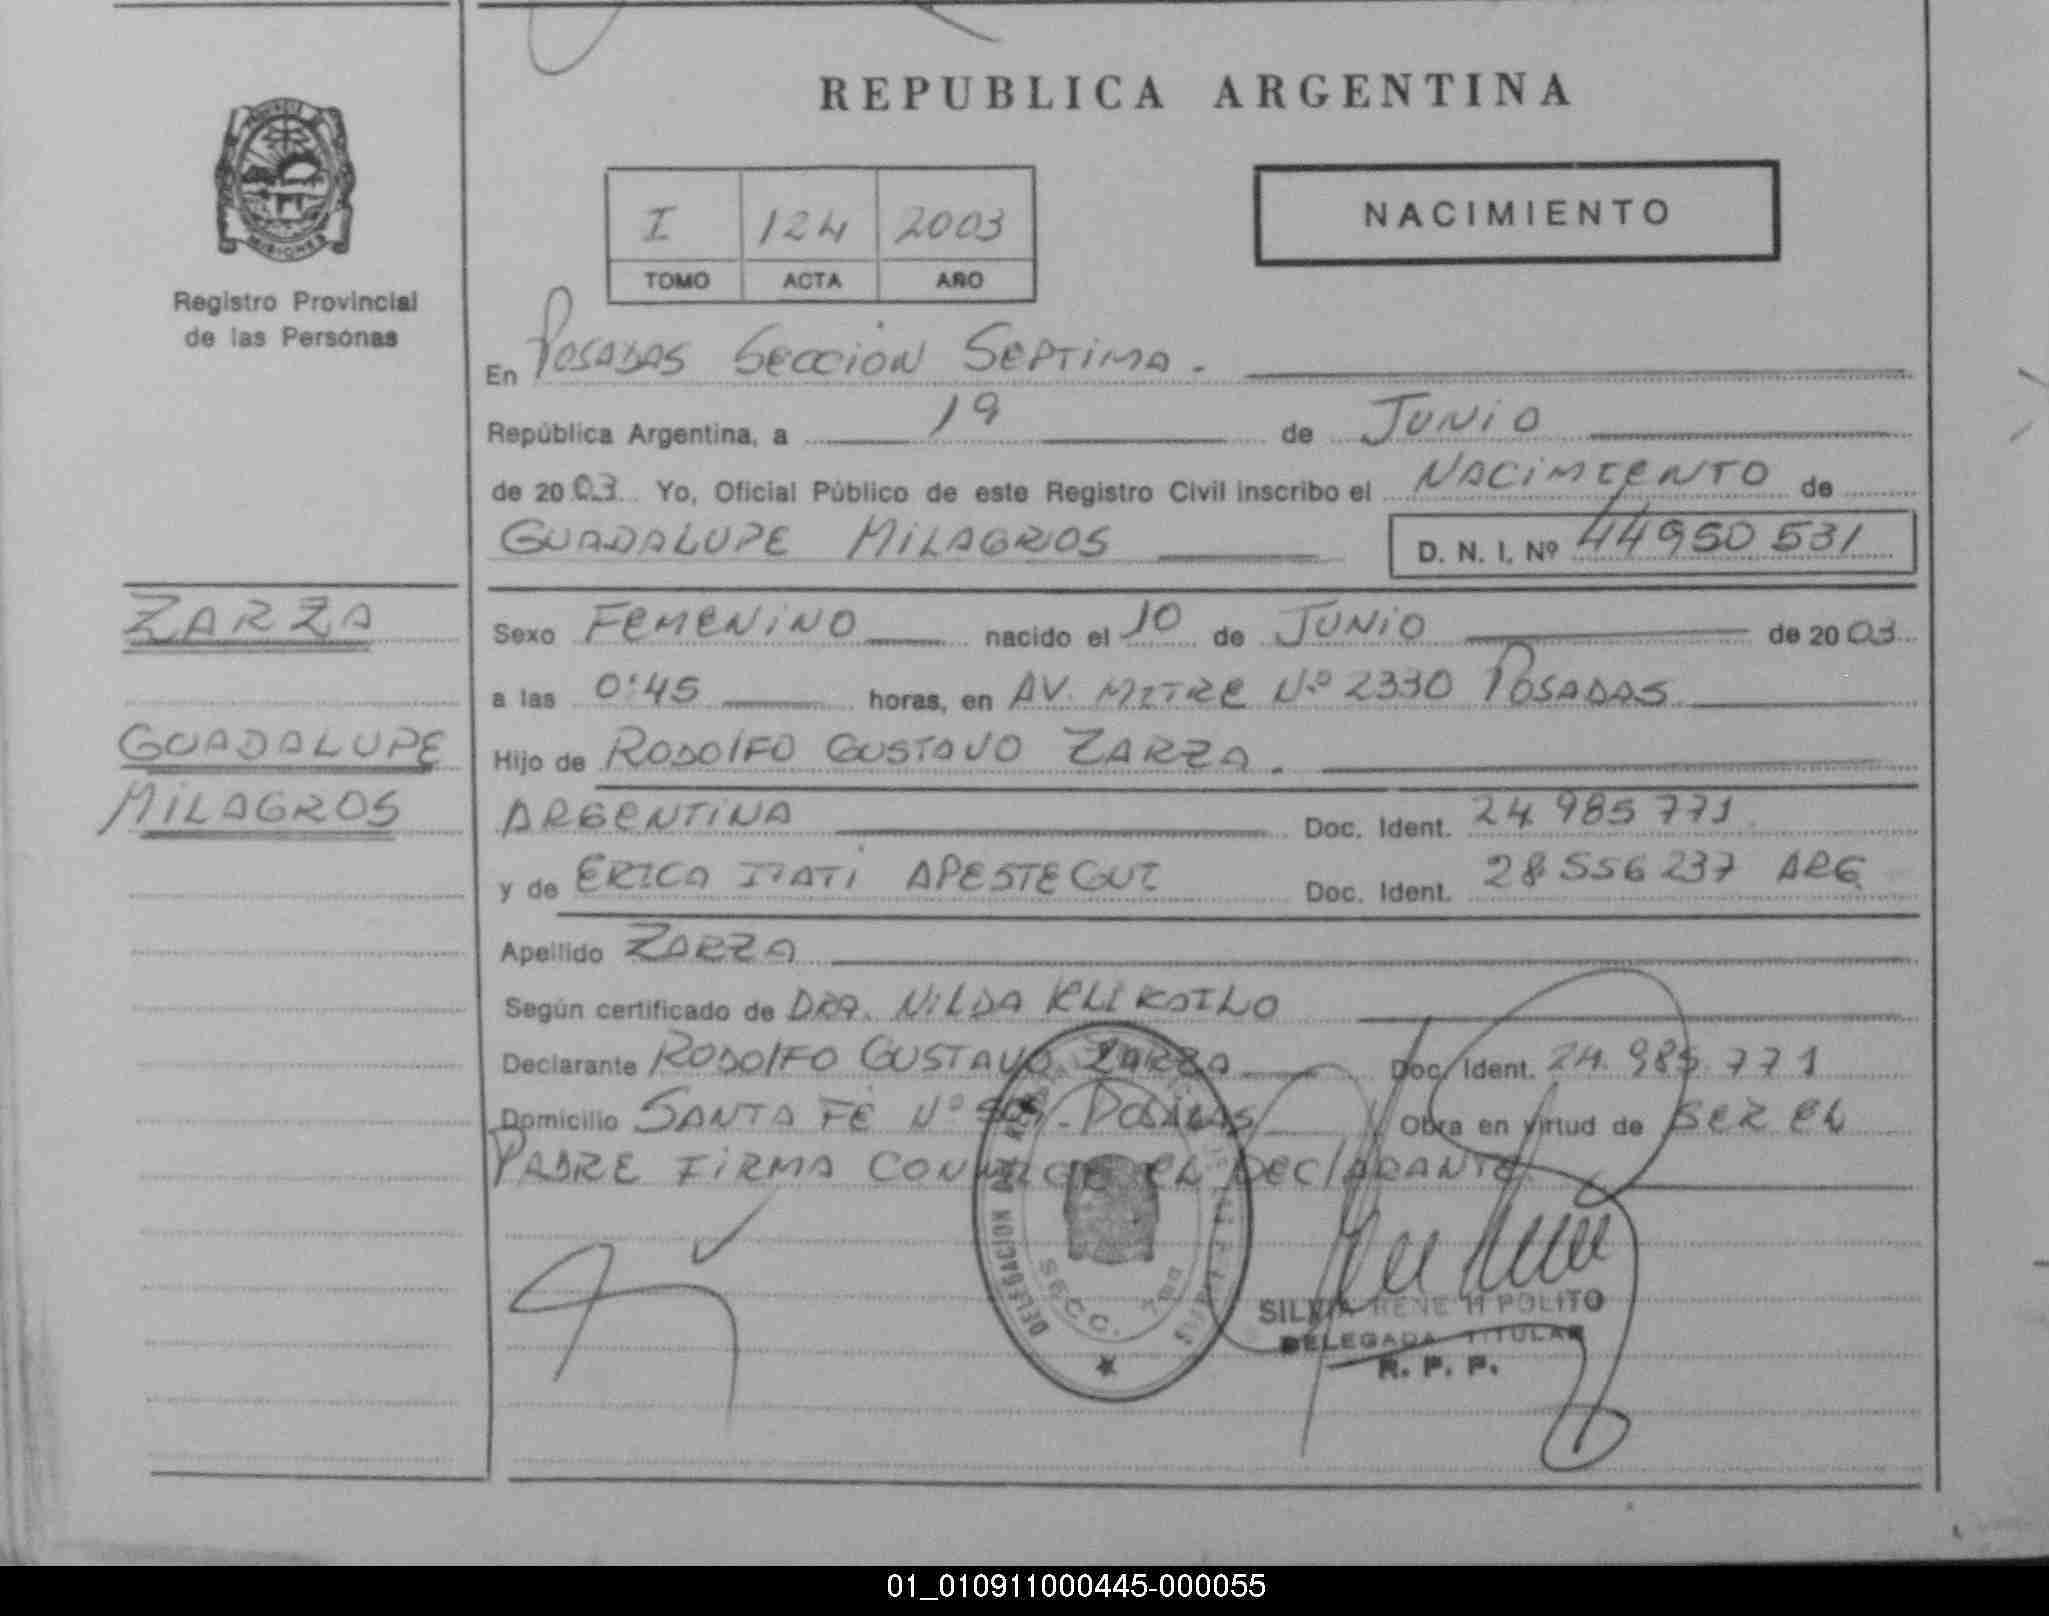 REPUBLICA ARGENTINA
MISIONES
Registro Provincial
de las Personas
I 124 2003
TOMO ACTA AÑO
NACIMIENTO
En POSADAS SECCION SEPTIMA.
República Argentina, a 19 de JUNIO
de 2003 Yo, Oficial Público de este Registro Civil inscribo el NACIMIENTO de
GUADALUPE MILAGROS D. N. I. Nº 44950531
ZARZA
GUADALUPE
MILAGROS
Sexo FEMENINO nacido el 10 de JUNIO de 2003
a las 0:45 horas, en AV. MITRE Nº 2330 POSADAS
Hijo de RODOLFO GUSTAVO ZARZA.
ARGENTINA Doc. Ident. 24.985771
y de ERICA ITATI APESTEGUI Doc. Ident. 28.556237 ARG
Apellido ZARZA
Según certificado de DRA. NILDA
Declarante RODOLFO GUSTAVO ZARZA Doc. Ident. 24.985.771
Domicilio SANTA FE Nº POSADAS Obra en virtud de SER EL
PADRE FIRMA CONMIGO EL DECLARANTE.
DELEGACION
SECC. 7ma
SILVIA IRENE HIPOLITO
DELEGADA TITULAR
R. P. P.
01_010911000445-000055